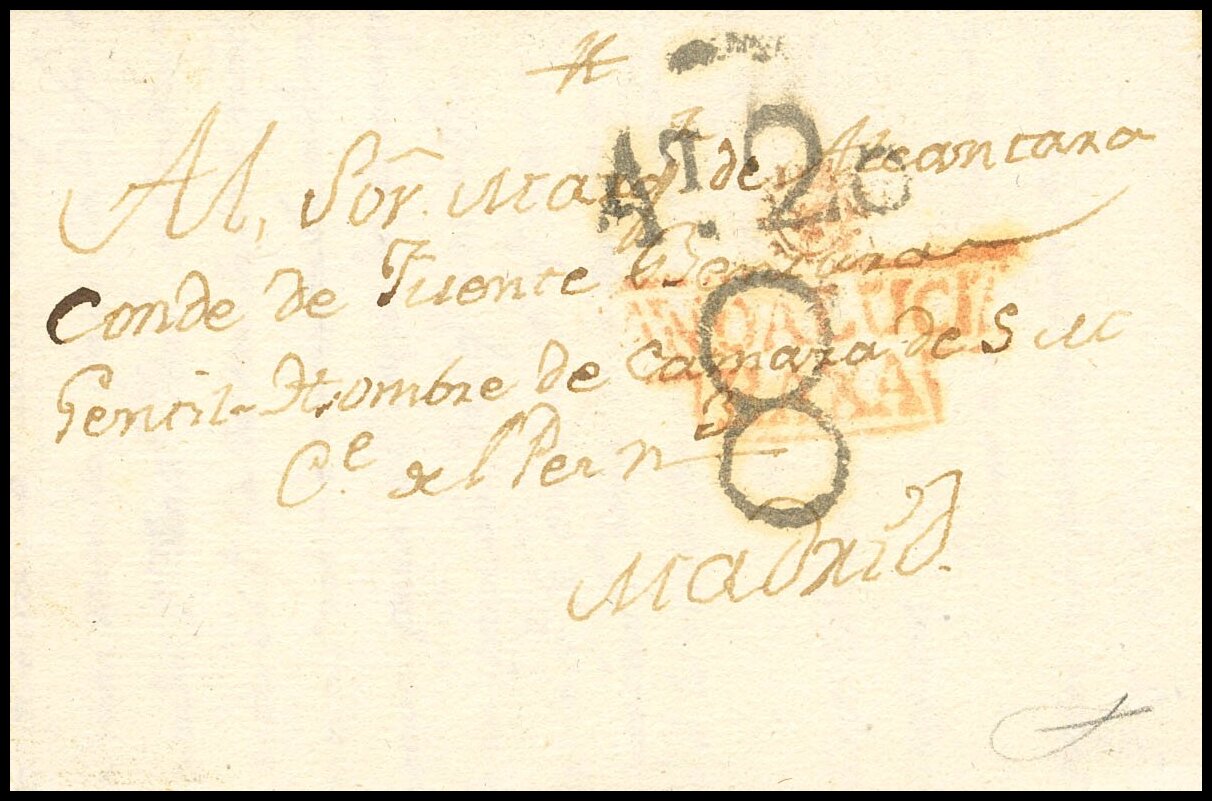 Al, Sōr. Marqs. de Alcantara
Conde de Fuente Bentura
Gentil-Hombre de Camara de S M
Ce. del Pern
Madrid.
A.T. 28
ANDALUCIA
BAXA
8